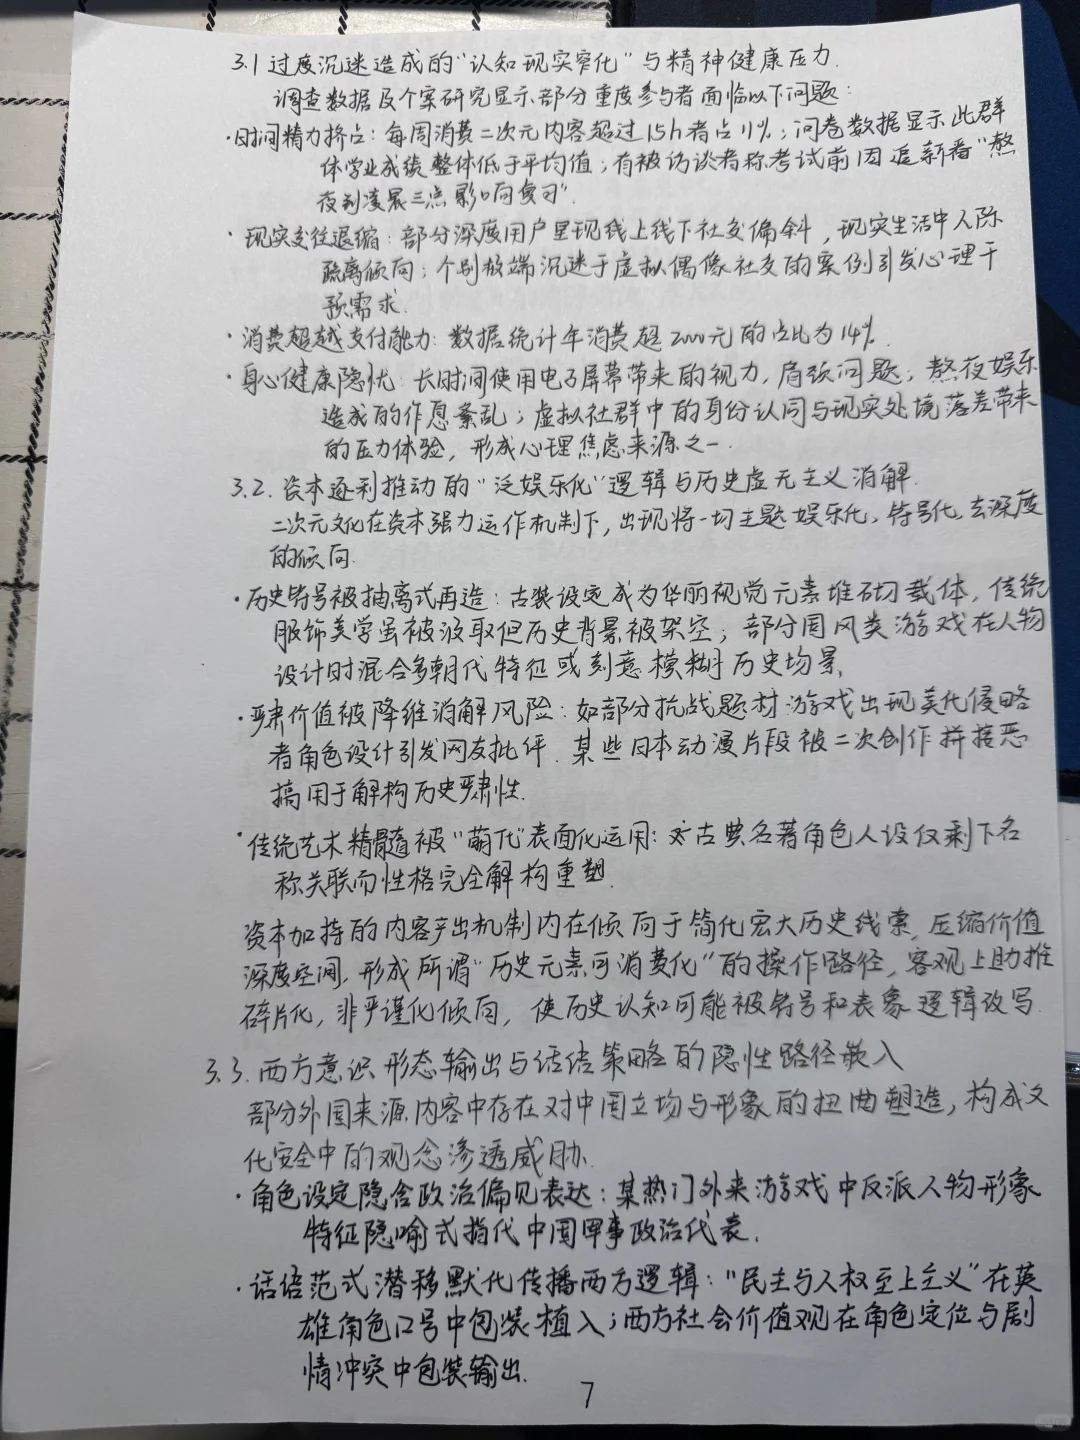 3.1 过度沉迷造成的“认知现实窄化”与精神健康压力.
调查数据及个案研究显示部分重度参与者面临以下问题：
·时间精力挤占：每周消费二次元内容超过15h者占11%；问卷数据显示此群
体学业成绩整体低于平均值；有被访谈者称考试前因追新番“熬
夜到凌晨三点影响复习”.
·现实交往退缩：部分深度用户呈现线上线下社交偏斜，现实生活中人际
疏离倾向；个别极端沉迷于虚拟偶像社交的案例引发心理干
预需求.
·消费超越支付能力：数据统计年消费超2000元的占比为14%.
·身心健康隐忧：长时间使用电子屏幕带来的视力，肩颈问题；熬夜娱乐
造成的作息紊乱；虚拟社群中的身份认同与现实处境落差带来
的压力体验，形成心理焦虑来源之一.
3.2. 资本逐利推动的“泛娱乐化”逻辑与历史虚无主义消解.
二次元文化在资本强力运作机制下，出现将一切主题娱乐化，符号化，去深度
的倾向.
·历史符号被抽离式再造：古装设定成为华丽视觉元素堆砌载体，传统
服饰美学虽被汲取但历史背景被架空；部分国风类游戏在人物
设计时混合多朝代特征或刻意模糊历史场景.
·严肃价值被降维消解风险：如部分抗战题材游戏出现美化侵略
者角色设计引发网友批评. 某些日本动漫片段被二次创作拼接恶
搞用于解构历史严肃性.
·传统艺术精髓被“萌化”表面化运用：对古典名著角色人设仅剩下名
称关联而性格完全解构重塑.
资本加持的内容产出机制内在倾向于简化宏大历史线索，压缩价值
深度空间，形成所谓“历史元素可消费化”的操作路径，客观上助推
碎片化，非严谨化倾向，使历史认知可能被符号和表象逻辑改写.
3.3. 西方意识形态输出与话语策略的隐性路径嵌入
部分外国来源内容中存在对中国立场与形象的扭曲塑造，构成文
化安全中的观念渗透威胁.
·角色设定隐含政治偏见表达：某热门外来游戏中反派人物形象
特征隐喻式指代中国军事政治代表.
·话语范式潜移默化传播西方逻辑：“民主与人权至上主义”在英
雄角色口号中包装植入；西方社会价值观在角色定位与剧
情冲突中包装输出.
7